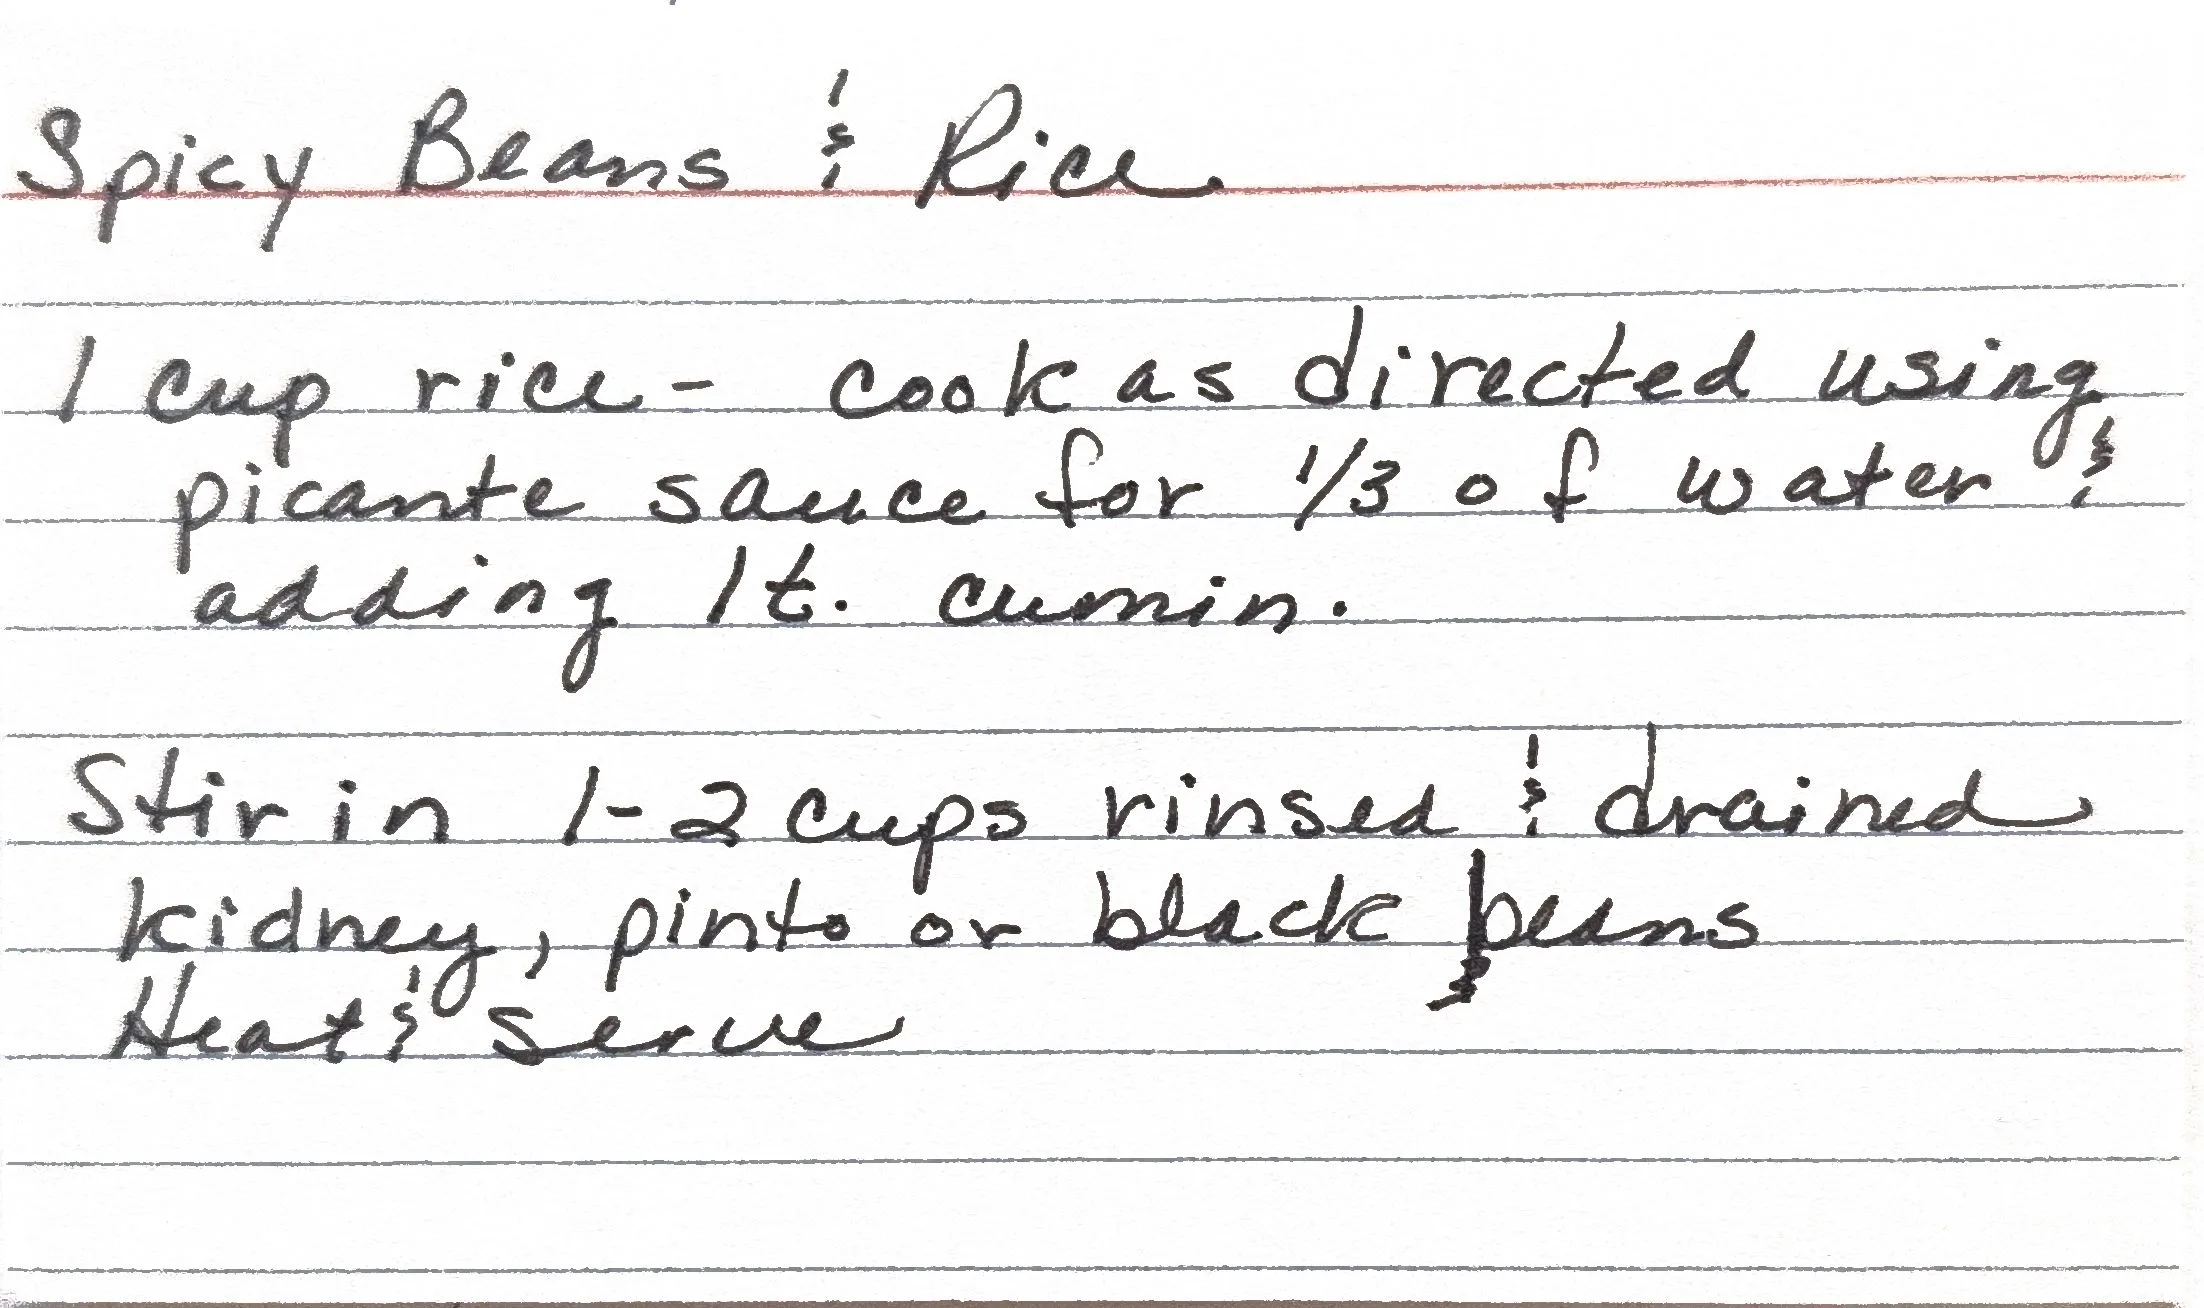 Spicy Beans & Rice
1 cup rice - cook as directed using
picante sauce for 1/3 of water &
adding 1 t. cumin.
Stir in 1-2 cups rinsed & drained
kidney, pinto or black beans
Heat & serve